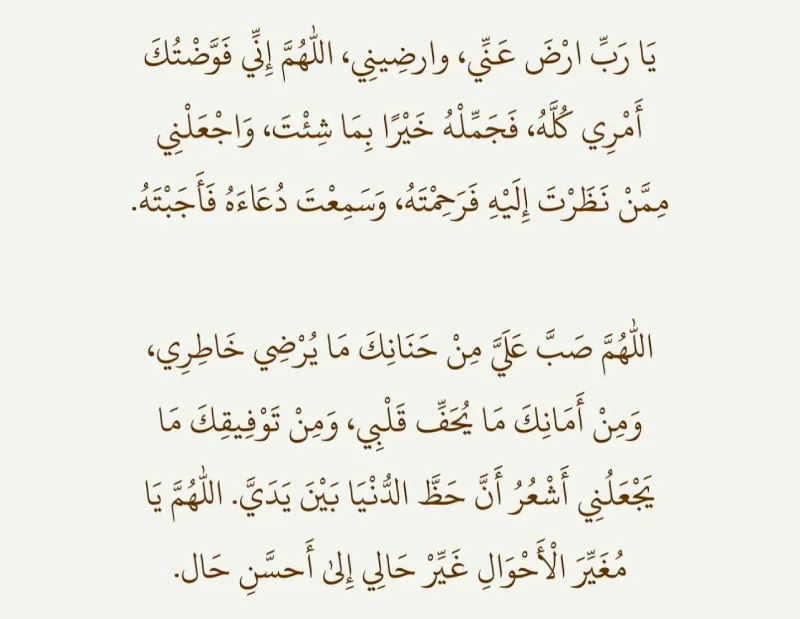 يَا رَبِّ ارْضَ عَنِّي، وارضِيني، اللَّهُمَّ إِنِّي فَوَّضْتُكَ
أَمْرِي كُلَّهُ، فَجَمِّلْهُ خَيْرًا بِمَا شِئْتَ، وَاجْعَلْنِي
مِمَّنْ نَظَرْتَ إِلَيْهِ فَرَحِمْتَهُ، وَسَمِعْتَ دُعَاءَهُ فَأَجَبْتَهُ.
اللَّهُمَّ صَبَّ عَلَيَّ مِنْ حَنَانِكَ مَا يُرْضِي خَاطِرِي،
وَمِنْ أَمَانِكَ مَا يُحَفِّ قَلْبِي، وَمِنْ تَوْفِيقِكَ مَا
يَجْعَلُنِي أَشْعُرُ أَنَّ حَظَّ الدُّنْيَا بَيْنَ يَدَيَّ. اللَّهُمَّ يَا
مُغَيِّرَ الْأَحْوَالِ غَيِّرْ حَالِي إِلىٰ أَحسَّنِ حَال.